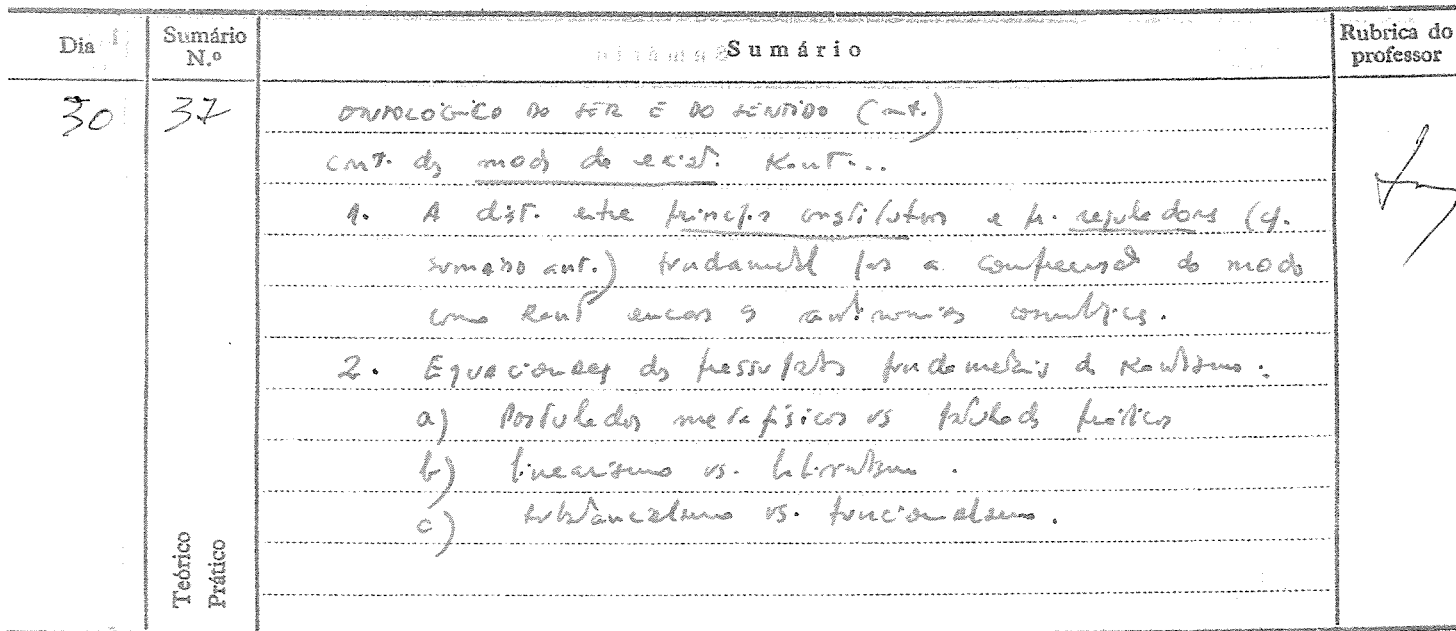 Dia
Sumário N.º
Sumário
Rubrica do professor
30
37
ONTOLÓGICO DO SER E DO SENTIDO (cont.)
cont. dos modos de exist. Kant...
1. A dist. entre princípios constitutivos e p. reguladores (cf.
sumário ant.) fundamental para a compreensão do modo
como Kant encara as antinomias cosmológicas.
2. Equacionação dos pressupostos fundamentais do Kantismo:
a) Postulados metafísicos vs postulados práticos
b) linearismo vs.
c) substancialismo vs. funcionalismo.
Teórico
Prático